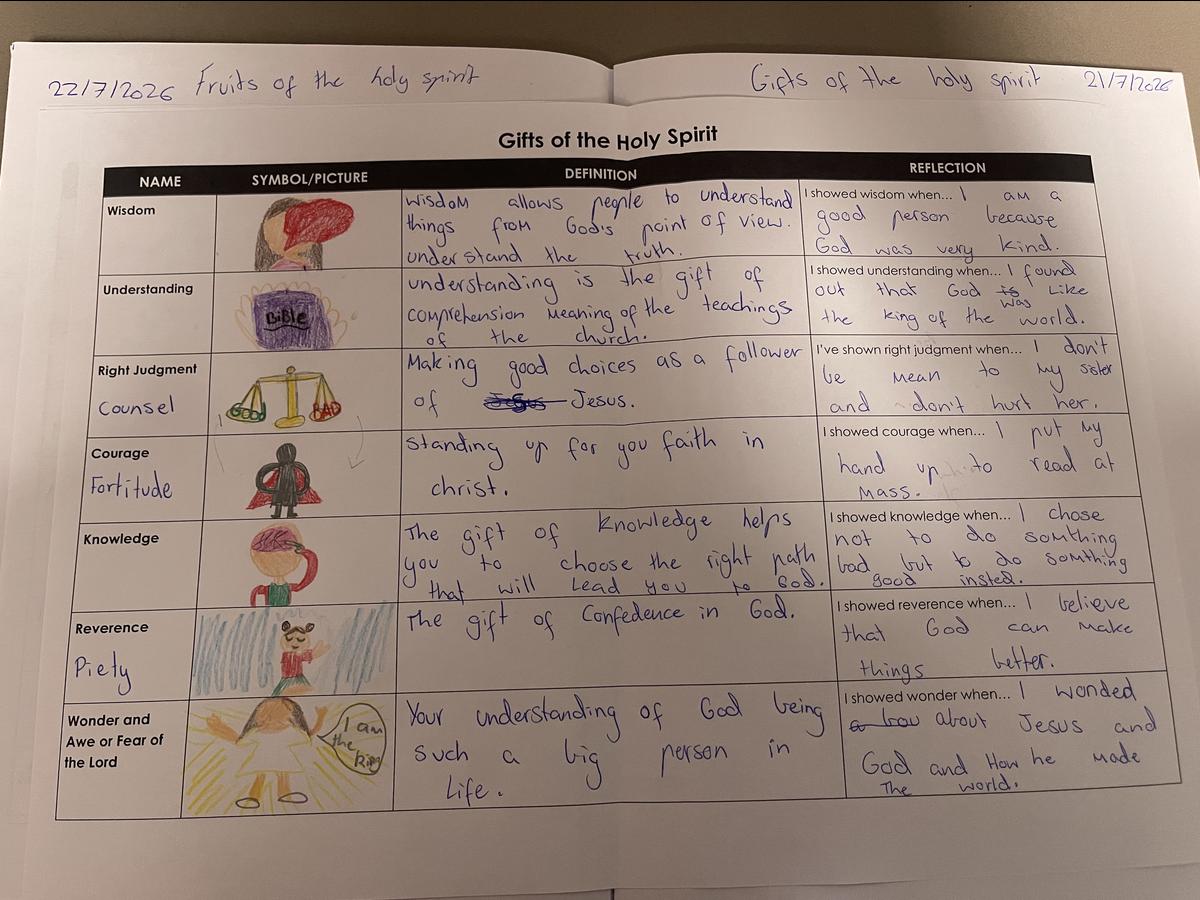 22/7/2026 Fruits of the holy spirit
Gifts of the holy spirit 21/7/2026
Gifts of the Holy Spirit
NAME SYMBOL/PICTURE DEFINITION REFLECTION
Wisdom
wisdom allows people to understand
things from God's point of view.
understand the truth.
I showed wisdom when... I am a
good person because
God was very kind.
Understanding
BiBle
understanding is the gift of
comprehension meaning of the teachings
of the church.
I showed understanding when... I found
out that God is was like
the king of the world.
Right Judgment
Counsel
GOOD BAD
Making good choices as a follower
of Jesus Jesus.
I've shown right judgment when... I don't
be mean to my sister
and don't hurt her.
Courage
Fortitude
Standing up for you faith in
christ.
I showed courage when... I put my
hand up to read at
mass.
Knowledge
The gift of knowledge helps
you to choose the right path
that will lead you to God.
I showed knowledge when... I chose
not to do somthing
bad but to do somthing
good insted.
Reverence
Piety
The gift of Confedence in God.
I showed reverence when... I believe
that God can make
things better.
Wonder and
Awe or Fear of
the Lord
I am
the king
Your understanding of God being
such a big person in
Life.
I showed wonder when... I wonded
about Jesus and
God and How he made
The world.